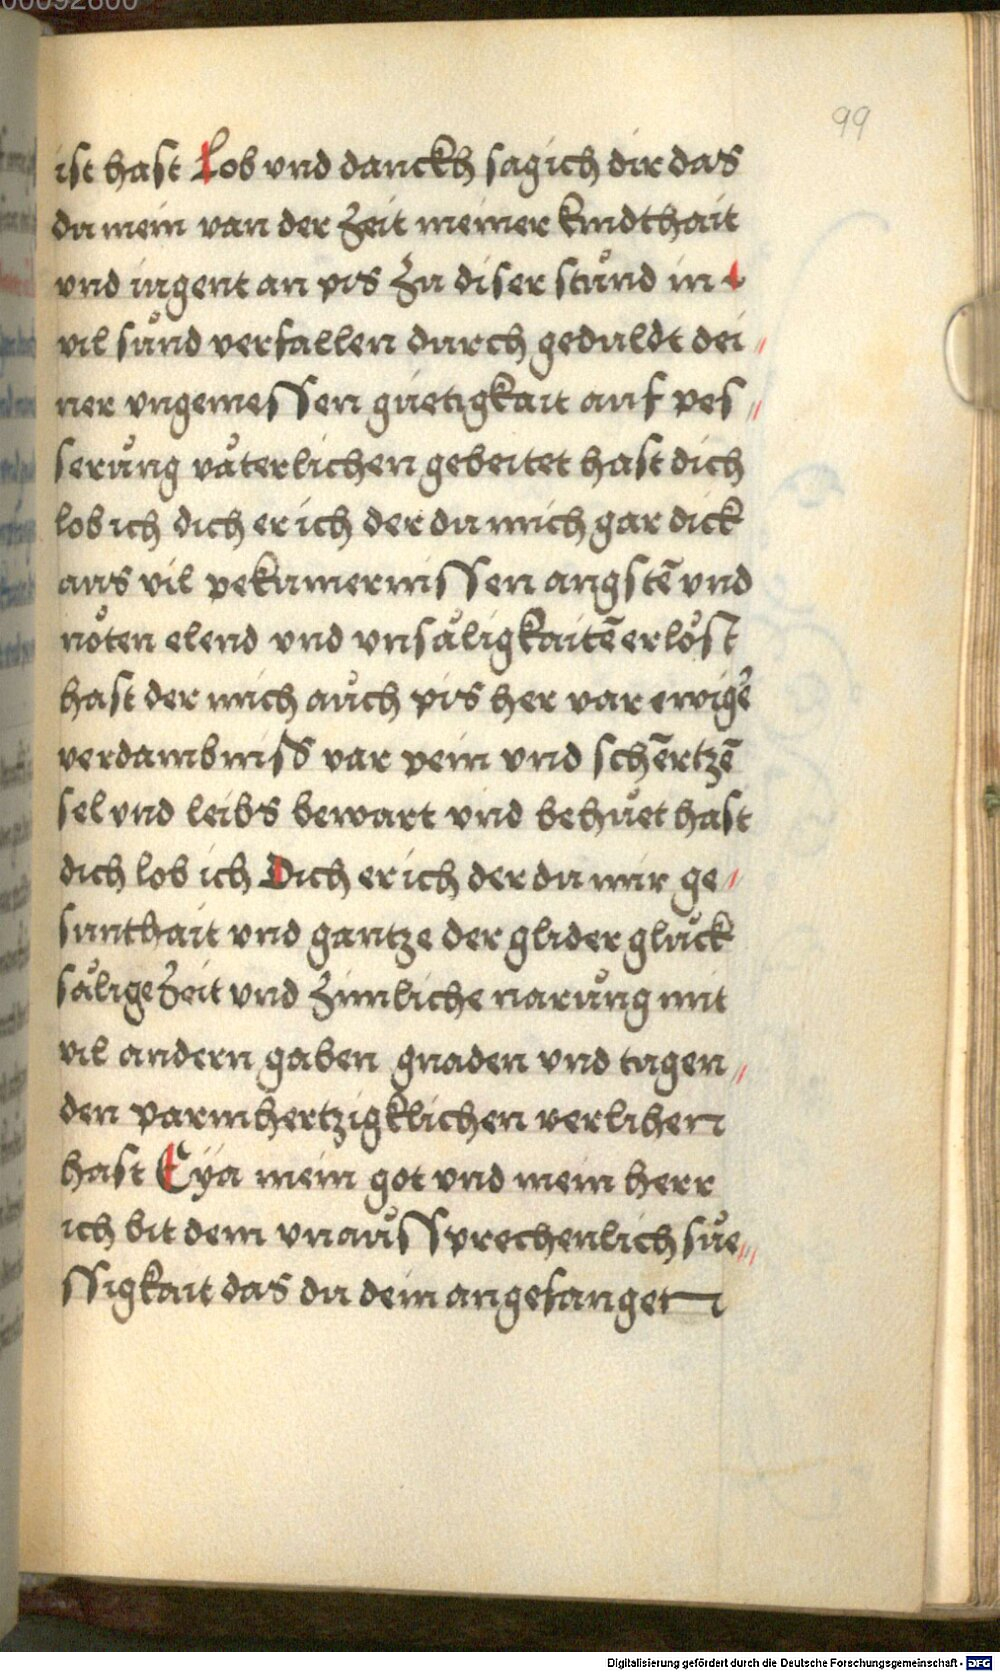 00092600
99
ist hast Lob vnd danckh sag ich dir das
du mein van der zeit meiner kindthait
vnd iugent an pis zu diser stůnd in
vil sůnd verfallen durch geduldt dei〃
ner vngemessen guetigkait auf pes〃
serůng våterlichen gebeitet hast dich
lob ich dich er ich der du mich gar dick
aus vil pekumernissen angstē vnd
nöten elend vnd vnsåligkaitē erlöst
hast der mich aůch pis her var ewigē
verdambniss var pein vnd schērtzē
sel vnd leibs bewart vnd behůet hast
dich lob ich Dich er ich der du mir ge〃
sunthait vnd gantze der glider glůck
sålige zeit vnd zimliche narůng mit
vil andern gaben gnaden vnd tugen〃
den parmhertzigklichen verlihen
hast Eÿa mein got vnd mein herr
ich bit dein vnaůssprechenlich sůe〃
ssigkait das du dein angefangen
Digitalisierung gefördert durch die Deutsche Forschungsgemeinschaft - DFG